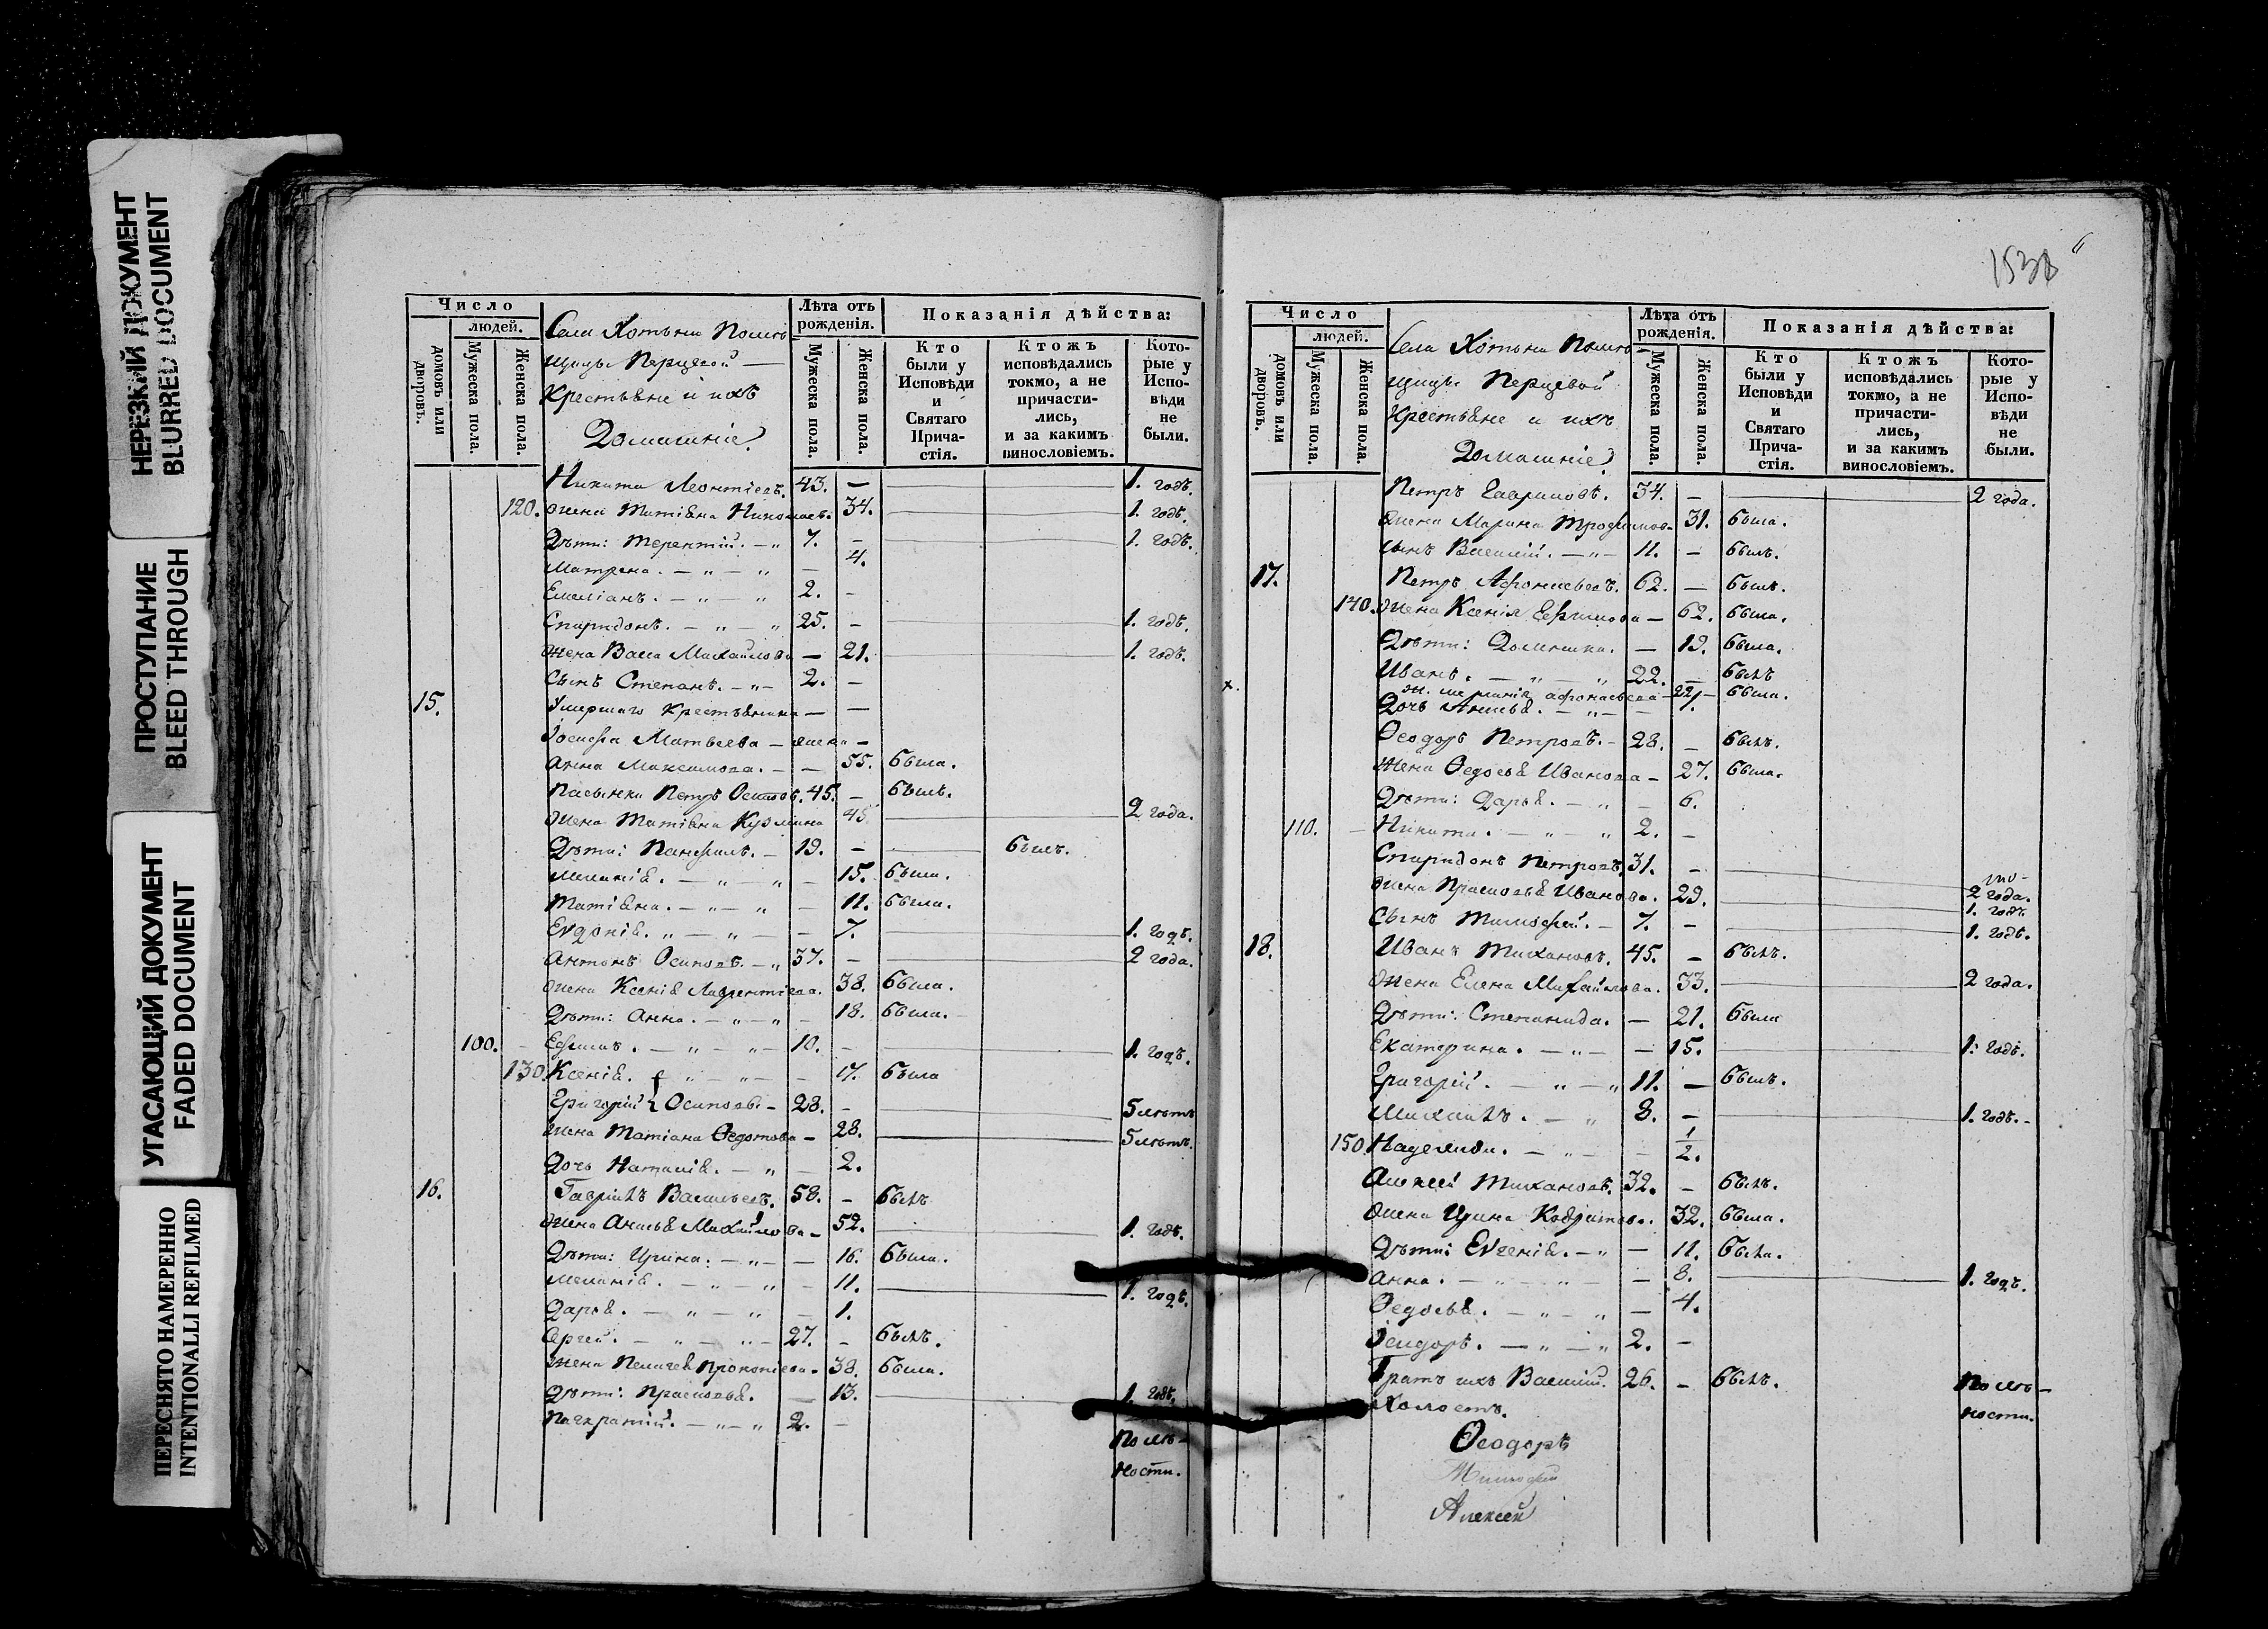 НЕРЕЗКИЙ ДОКУМЕНТ
BLURRED DOCUMENT
ПРОСТУПАНИЕ
BLEED THROUGH
УГАСАЮЩИЙ ДОКУМЕНТ
FADED DOCUMENT
ПЕРЕСНЯТО НАМЕРЕННО
INTENTIONALLI REFILMED
Число
людей.
домовъ или дворовъ.
Мужеска пола.
Женска пола.
Села Хотьни Помѣ
щицы Перцевой —
Крестьяне и ихъ
Домашніе
Лѣта отъ рожденія.
Мужеска пола.
Женска пола.
Показанія дѣйства:
Кто были у Исповѣди и Святаго Прича-стія.
Ктожъ исповѣдались токмо, а не причасти-лись, и за какимъ винословіемъ.
Кото-рые у Испо-вѣди не были.
Никита Леонтіевъ. 43. — 1. годъ.
120. жена Татіана Николаев. 34. 1. годъ.
Дѣти: Терентій. — „ 7. - 1. годъ.
Матрена. — „ — „ — 4.
Емеліанъ. — „ — „ 2. -
Спиридонъ. — „ — „ 25. - 1. годъ.
жена Васса Михайлова — 21. 1. годъ.
Сынъ Степанъ. — „ — 2. -
15. Умершаго Крестьянина — —
Іосифа Матвѣева — жена —
Анна Максимова. — — 55. была.
Пасынки Петръ Осиповъ. 45. — былъ.
жена Татіана Кузмина 45. 2 года.
Дѣти: Панфилъ. — 19. — былъ.
Меланія. — „ — „ — 15. была.
Татіана. — „ — „ — 11. была.
Евдокія. „ — „ — — 7. 1. годъ.
Антонъ Осиповъ. — „ 37. - 2 года.
жена Ксенія Лаврентіева. 38. была.
Дѣти: Анна. — „ — „ — 18. была.
100. Ефимъ. — „ — „ — 10. - 1. годъ.
130. Ксенія. „ — „ — — 17. была
Григорій Осиповъ. — 28. - 5 лѣтъ
жена Татіана Ѳедотова — 28. 5 лѣтъ.
Дочь Наталія. — „ — 2.
16. Гавріилъ Васильевъ. 58. - былъ
жена Анисья Михайлова — 52. 1. годъ.
Дѣти: Ирина. — „ — — 16. была.
Меланія. — „ — „ — 11. 1. годъ.
Дарья. — „ — „ — 1.
Сергей. — „ — „ — 27. - былъ.
жена Пелагея Прокопіева. 38. была.
Дѣти: Прасковья. — 13. 1. годъ.
Панкратій. — „ — „ 2. —
По лѣ-
ности.
153
Число
людей.
домовъ или дворовъ.
Мужеска пола.
Женска пола.
Села Хотьни Помѣ
щицы Перцевой
Крестьяне и ихъ
Домашніе
Лѣта отъ рожденія.
Мужеска пола.
Женска пола.
Показанія дѣйства:
Кто были у Исповѣди и Святаго Прича-стія.
Ктожъ исповѣдались токмо, а не причасти-лись, и за какимъ винословіемъ.
Кото-рые у Испо-вѣди не были.
Петръ Гавриловъ. 34. — 2 года.
жена Марина Трофимов. 31. была.
сынъ Василій. — „ — 11. — былъ.
17. Петръ Афонасьевъ. 62. — былъ.
140. жена Ксенія Ефимова — 62. была.
Дѣти: Домника. — 19. была.
Иванъ. — „ — „ 22. — былъ
ж. Меланія Афонасьева — 22. — была.
Дочь Анисья. — „ — 1.
Ѳеодоръ Петровъ. — 28. — былъ.
жена Ѳедосья Иванова — 27. была.
Дѣти: Дарья. — „ — 6.
110. Никита. — „ — „ 2. -
Спиридонъ Петровъ. 31. - 2 года.
жена Прасковья Иванова. 29. 1. годъ.
Сынъ Тимофей. — 7. - 1. годъ.
18. Иванъ Тихановъ. 45. — былъ.
жена Елена Михайлова. 33. 2 года.
Дѣти: Степанида. — 21. была
Екатерина. — „ — — 15. 1. годъ.
Григорій. — „ — „ 11. — былъ.
Михаилъ. — „ 8. — 1. годъ. -
150. Надежда. — „ — 1/2.
Алексей Тихановъ. 32. - былъ.
жена Ирина Кодратова. 32. была.
Дѣти: Евгенія. — „ — 11. была.
Анна. — „ — „ — — 8. 1. годъ.
Ѳедосья. — „ — „ — 4.
Ісидоръ. — „ — „ 2. —
Братъ ихъ Василій. 26. - былъ.
Холостъ.
По лѣ-
ности.
Ѳеодоръ
Алексей